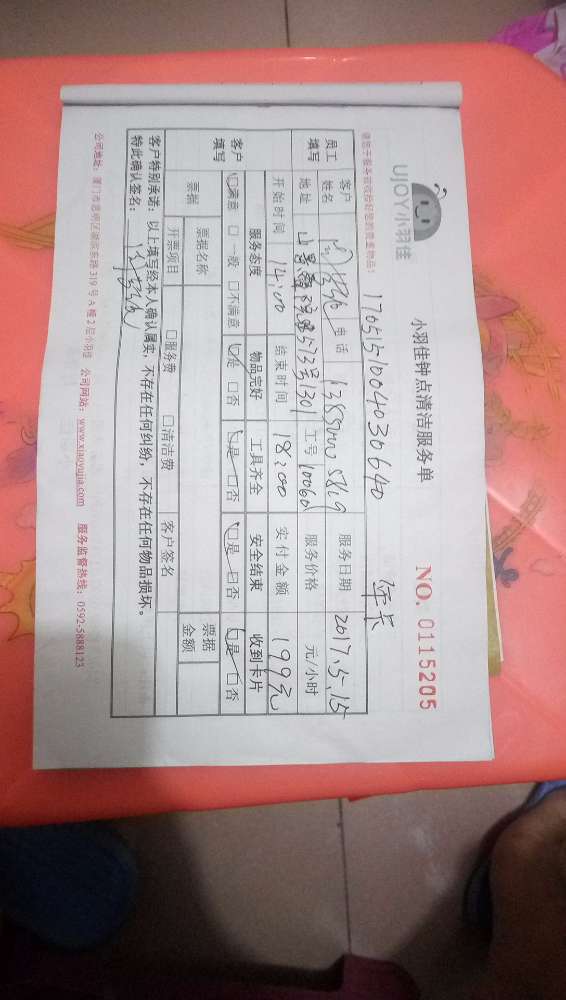 UJOY小羽佳
小羽佳钟点清洁服务单
NO. 0115205
请您于服务前收拾好您的贵重物品!
1705151004030640 年卡
员工填写
客户姓名 电话 服务日期 2017.5.15
地址 573号1301 工号 10060 服务价格 元/小时
开始时间 14:00 结束时间 18:00 实付金额 199元
客户填写
服务态度 物品完好 工具齐全 安全结束 收到卡片
□满意 □一般 □不满意 □是 □否 □是 □否 □是 □否 □是 □否
票据 票据名称 票据金额
开票项目 □服务费 □清洁费 客户签名
客户特别承诺：以上填写经本人确认属实，不存在任何纠纷，不存在任何物品损坏。
特此确认签名：
公司地址：厦门市思明区湖滨东路319号A幢2层小羽佳 公司网站：www.xiaoyujia.com 服务监督热线：0592-5888123